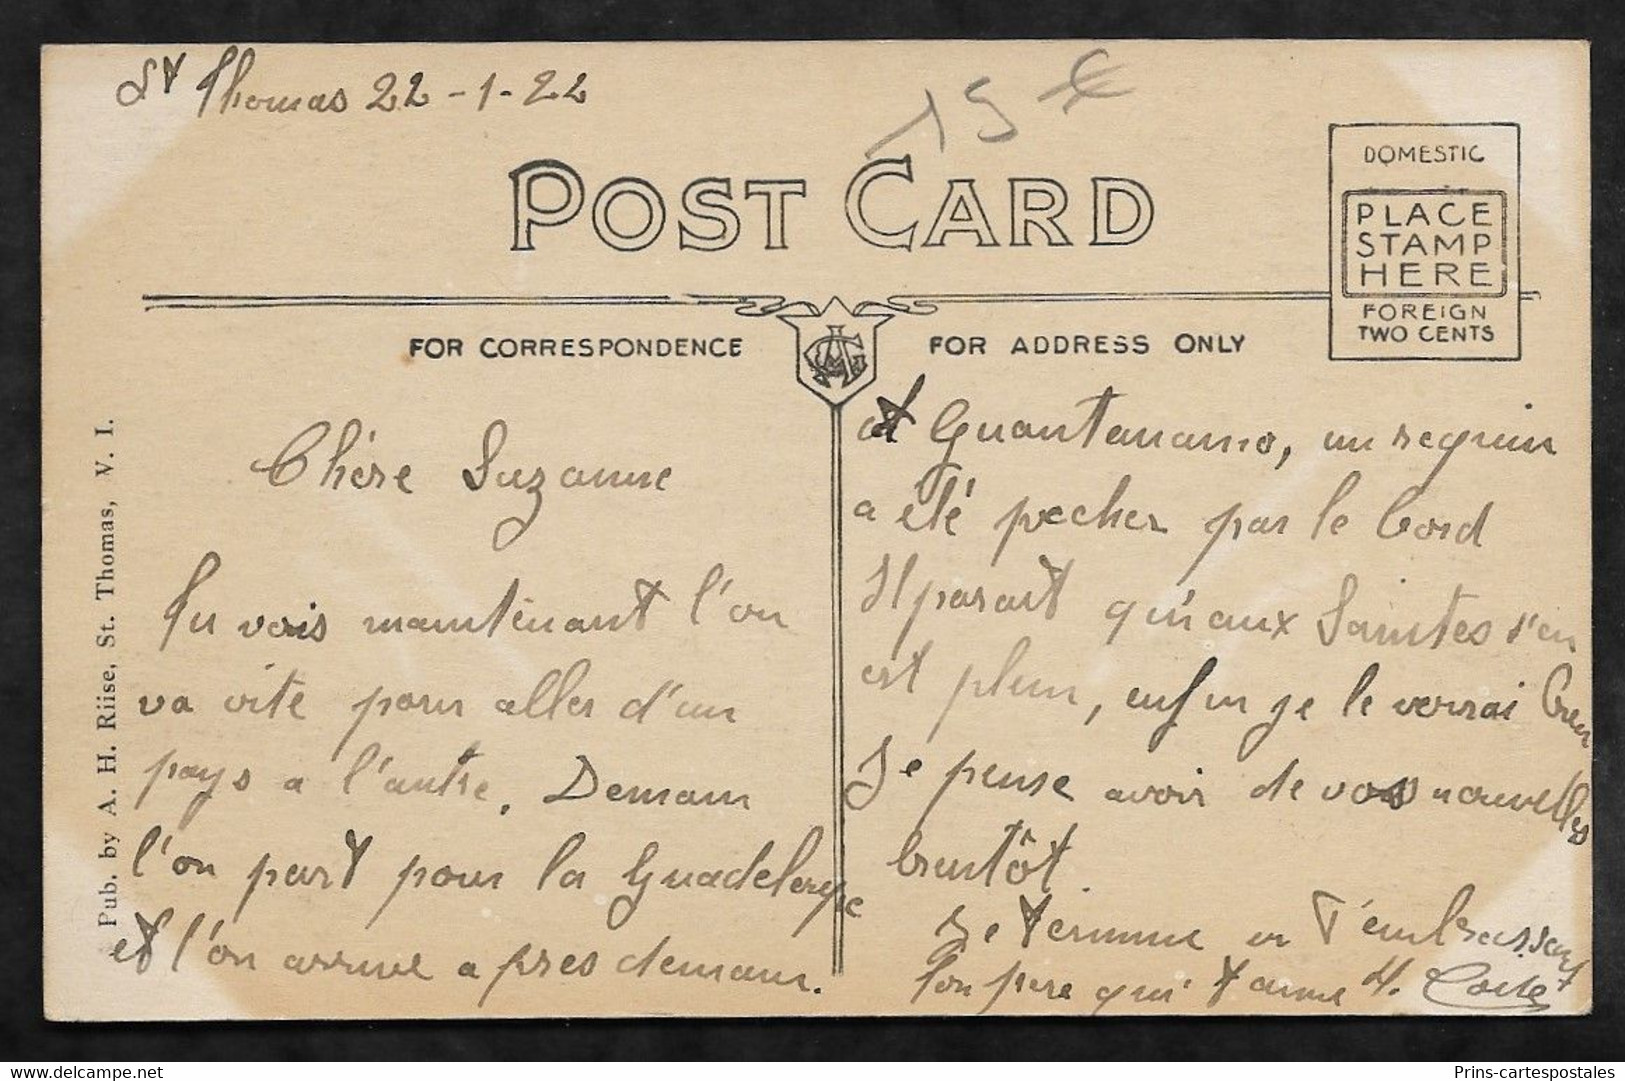 St Thomas 22-1-22
15 €
POST CARD
DOMESTIC
PLACE
STAMP
HERE
FOREIGN
TWO CENTS
FOR CORRESPONDENCE
FOR ADDRESS ONLY
Pub. by A. H. Riise, St. Thomas, V. I.
Chère Suzanne
Tu vois maintenant l'on
va vite pour aller d'un
pays a l'autre. Demain
l'on part pour la Guadeloupe
et l'on arrive apres demain.
A Guantanamo, un requin
a été pecher par le bord
Il parait qu'aux Saintes s'en
est plein, enfin je le verrai bien
Je pense avoir de vos nouvelles
bientôt.
Je termine en t'embrassant
Ton pere qui t'aime H.
Prins-cartespostales
www.delcampe.net